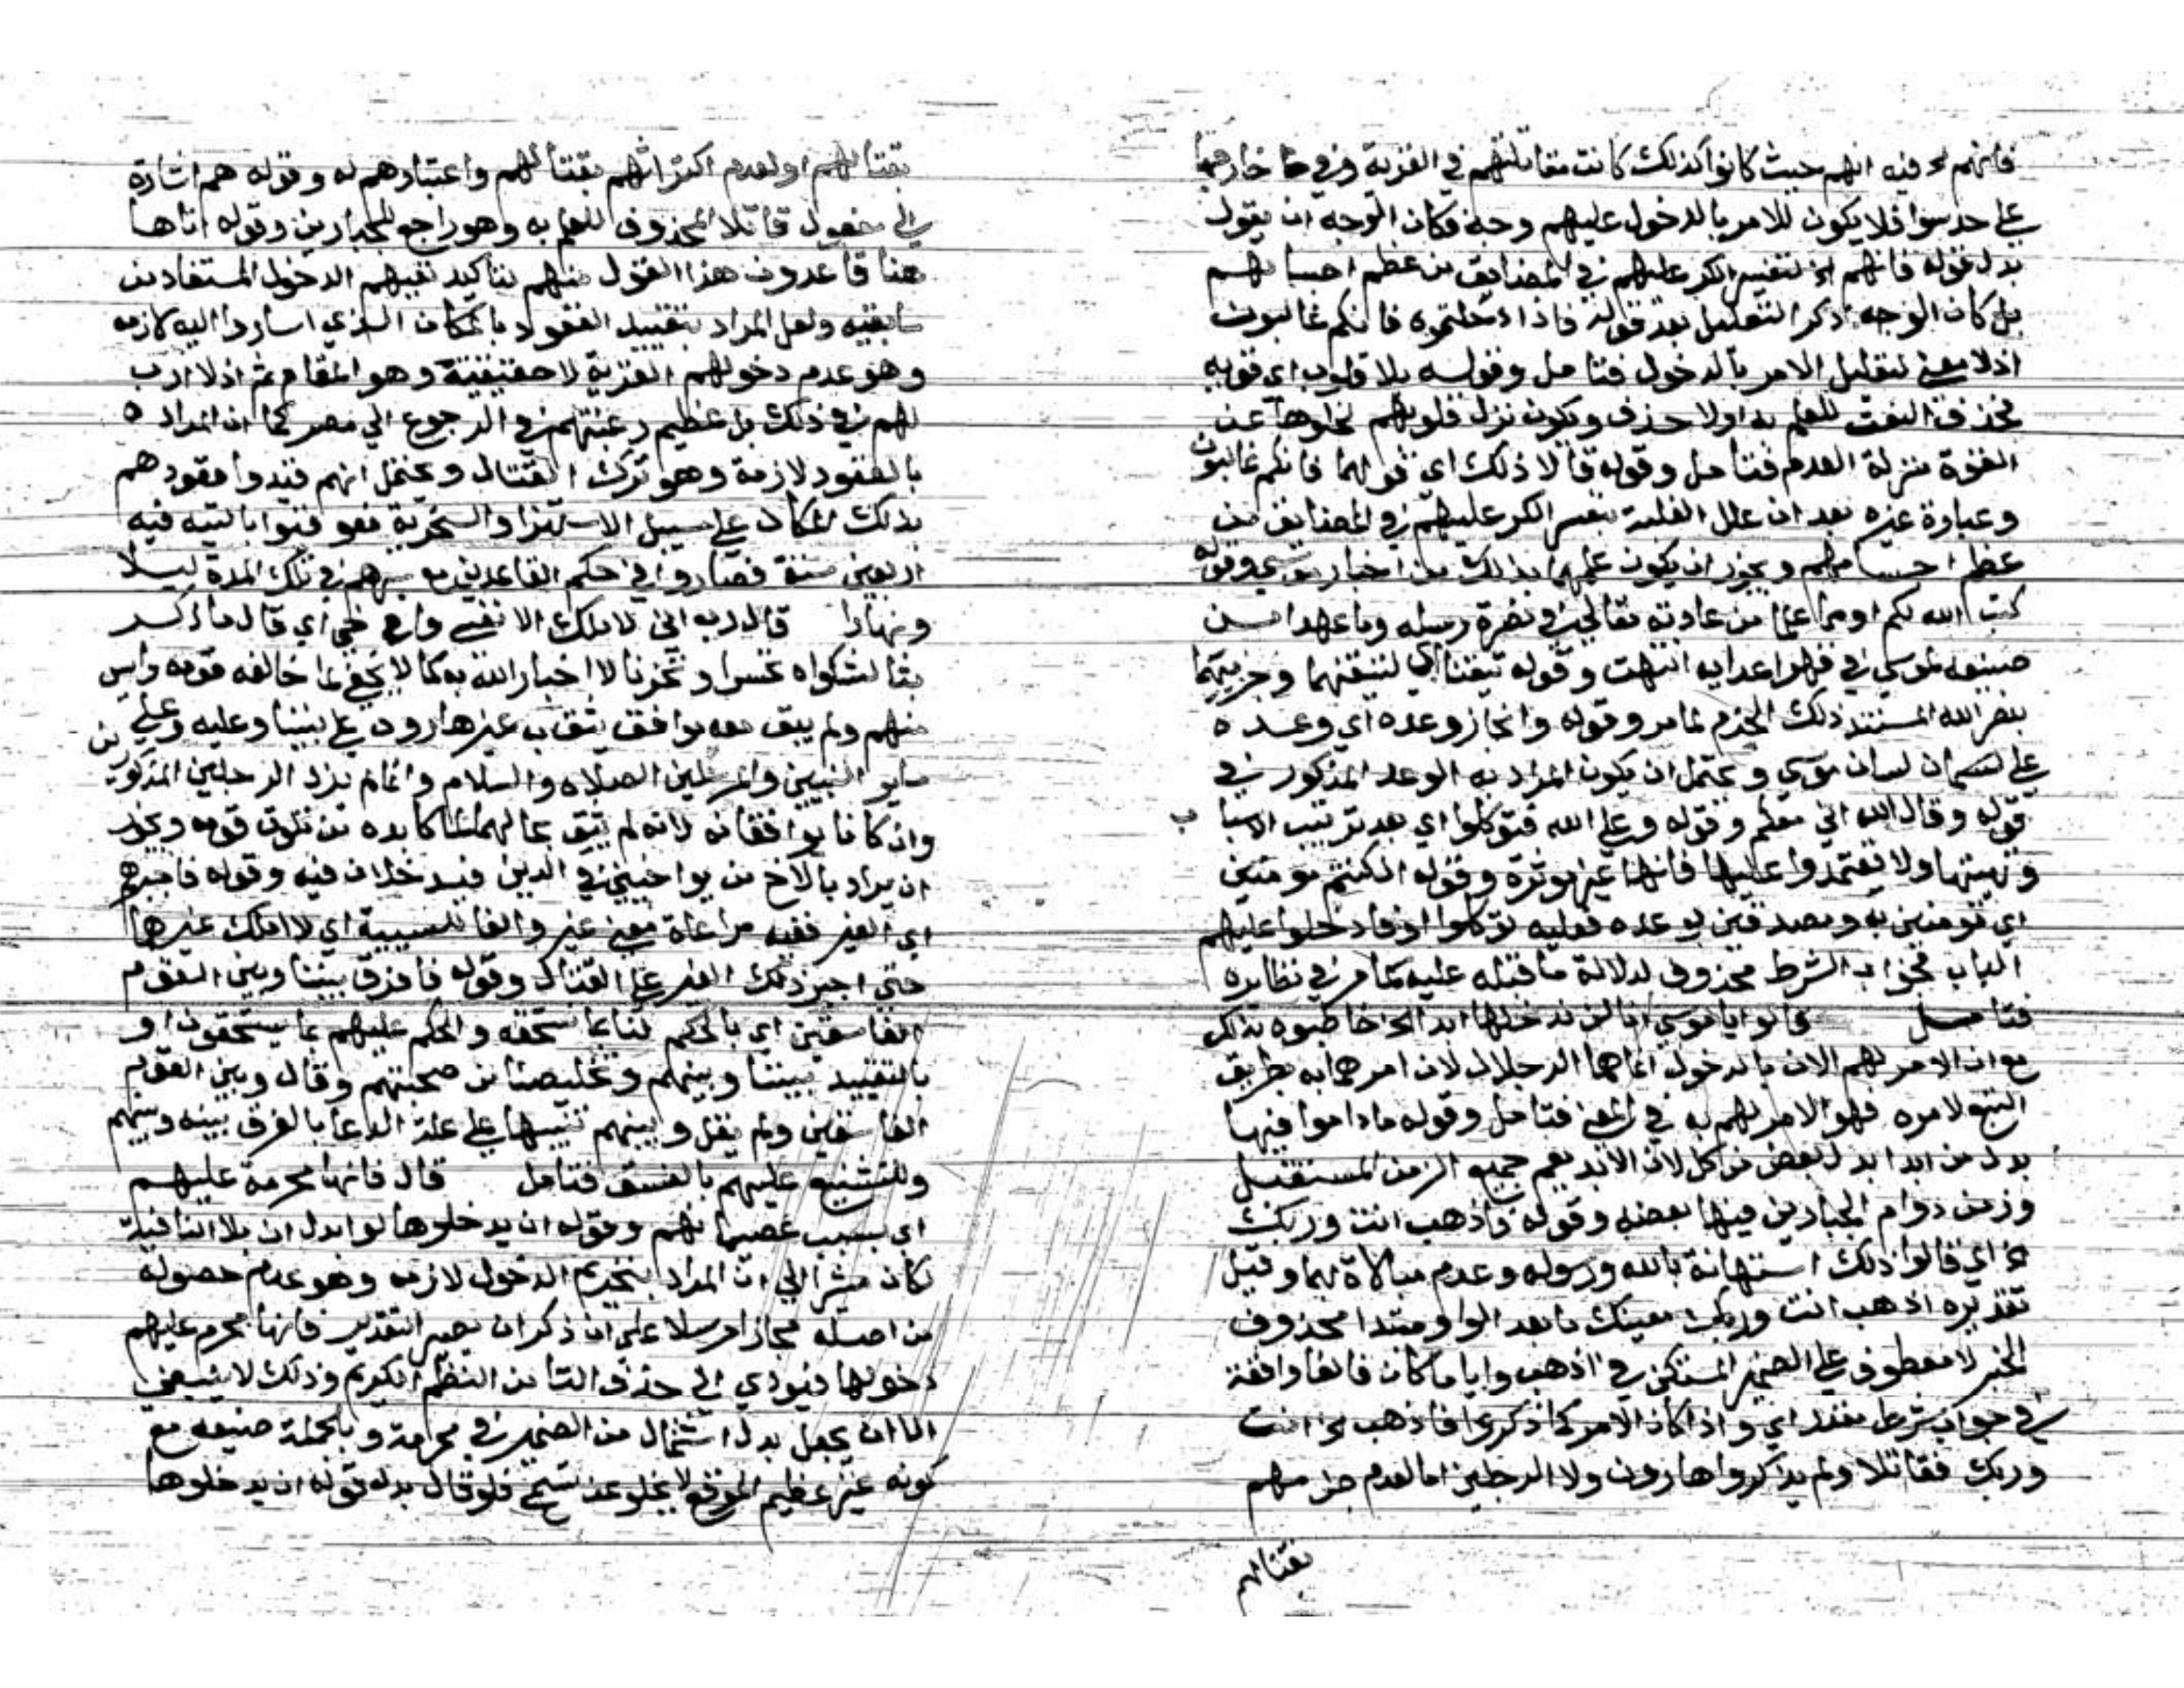 فانهم لخ فيه انهم حيث كانوا كذلك كانت مقاتلتهم في القرية وفي خارجها
على حد سوا فلا يكون للامر بالدخول عليهم وجه فكان الوجه ان يقول
بدل قوله فانهم الخ لتعسر الكر عليهم في المضايق من عظم اجسامهم
بل كان الوجه ذكر التعليل بعد قوله فاذا دخلتموه فانكم غالبون
اذ لا معنى لتعليل الامر بالدخول فتامل وقوله بلا قلوب اي قويه
فحذف النعت للعلم به او لا حذف ويكون نزل قلوبهم لخلوها عن
القوة منزلة العدم فتامل وقوله قالا ذلك اي قولهما فانكم غالبون
وعبارة غيره بعد ان علل الغلبة بتعسر الكر عليهم في المضايق من
عظم اجسامهم ويجوز ان يكون علمهما بذلك من اخبار موسى وقوله
كتب الله لكم او مما علما من عادته تعالى في نصرة رسله وما عهدا من
صنيعه لموسى في قهر اعدايه انتهت وقوله تيقنا اي لتيقنهما وجزمهما
بنصر الله المستند ذلك الجزم لما مر وقوله وانجاز وعده اي وعده
على لسان موسى ويحتمل ان يكون المراد به الوعد المذكور في
قوله وقال الله اني معكم وقوله وعلى الله فتوكلوا اي بعد ترتيب الاسباب
وتهيئتها ولا تعتمدوا عليها فانها غير موثرة وقوله ان كنتم مومنين
اي مومنين به ومصدقين بوعده فعليه توكلوا او فادخلوا عليهم
الباب فجواب الشرط محذوف لدلالة ما قبله عليه كما مر في نظايره
فتامل قالوا يا موسى انا لن ندخلها ابدا الخ خاطبوه بذلك
مع ان الامر لهم الان بالدخول انما هما الرجلان لان امرهما به بطريق
التبع لامره فهو الامر لهم به في المعنى فتامل وقوله ما داموا فيها
بدل من ابدا بدل بعض من كل لان الابد يعم جميع الزمن المستقبل
وزمن دوام الجبارين فيها بعضه وقوله فاذهب انت وربك
الخ اي قالوا ذلك استهانة بالله ورسوله وعدم مبالاة بهما وقيل
تقديره اذهب انت وربك معينك فما بعد الواو مبتدا محذوف
الخبر لا معطوف على الضمير المستكن في اذهب وايا ما كان فالفا واقعة
في جواب شرط مقدر اي واذا كان الامر كما ذكر فاذهب الخ انت
وربك فقاتلا ولم يذكروا هارون ولا الرجلين اما لعدم جزمهم
بقتالهم
بقتالهم او لعدم اكتراثهم بقتالهم واعتبارهم له وقوله هم اشارة
الى مفعول قاتلا المحذوف للعلم به وهو راجع للجبارين وقوله انا ها
هنا قاعدون هذا القول منهم تاكيد لنفيهم الدخول المستفاد من
سابقيه ولعل المراد بتقييد القعود بالمكان الذي اشاروا اليه لازمه
وهو عدم دخولهم القرية لا حقيقته وهو المقام ثم اذ لا ارب
لهم في ذلك بل عظيم رغبتهم في الرجوع الى مصر كما ان المراد
بالقعود لازمة وهو ترك القتال ويحتمل انهم قيدوا قعودهم
بذلك المكان على سبيل الاستهزا والسخرية فعوقبوا بالتيه فيه
اربعين سنة فصاروا في حكم القاعدين مع سيرهم في تلك المدة ليلا
ونهارا قال رب اني لا املك الا نفسي واخي اي قال ما ذكر
بثا لشكواه تحسرا وتحزنا لا اخبارا لله به كما لا يخفى لما خالفه قومه وايس
منهم ولم يبق معه موافق يثق به غير هارون على نبينا وعليه وعلى
ساير النبيين والمرسلين الصلاه والسلام وانما لم يزد الرجلين المذكورين
وان كانا يوافقانه لانه لم يثق بحالهما لما كابده من تلون قومه ويجوز
ان يراد بالاخ من يواخيني في الدين فيدخلان فيه وقوله فاجبرهم
اي الغير ففيه مراعاة معنى غير والفا للسببية اي لا املك غيرهما
حتى اجبر ذلك الغير على القتال وقوله فافرق بيننا وبين القوم
الفاسقين اي بالحكم لنا بما نستحقه والحكم عليهم بما يستحقونه او
بالتبعيد بيننا وبينهم وتخليصنا من صحبتهم وقال وبين القوم
الفاسقين ولم يقل وبينهم تنبيها على علة الدعا بالفرق بينه وبينهم
وللتشنيع عليهم بالفسق فتامل قال فانها محرمة عليهم
اي بسبب عصيانهم وقوله ان يدخلوها لو ابدل ان بلا النافية
لكان مشيرا الى ان المراد بتحريم الدخول لازمه وهو عدم حصوله
من اصله مجازا مرسلا على ان ذكر ان يصير التقدير فانها محرم عليهم
دخولها فيودي الى حذف التا من النظم الكريم وذلك لا ينبغي
الا ان يجعل بدل اشتمال من الضمير في محرمة وبالجملة صنيعه مع
كونه غير عظيم الموقع لا يخلو عن شي فلو قال بدل قوله ان يدخلوها